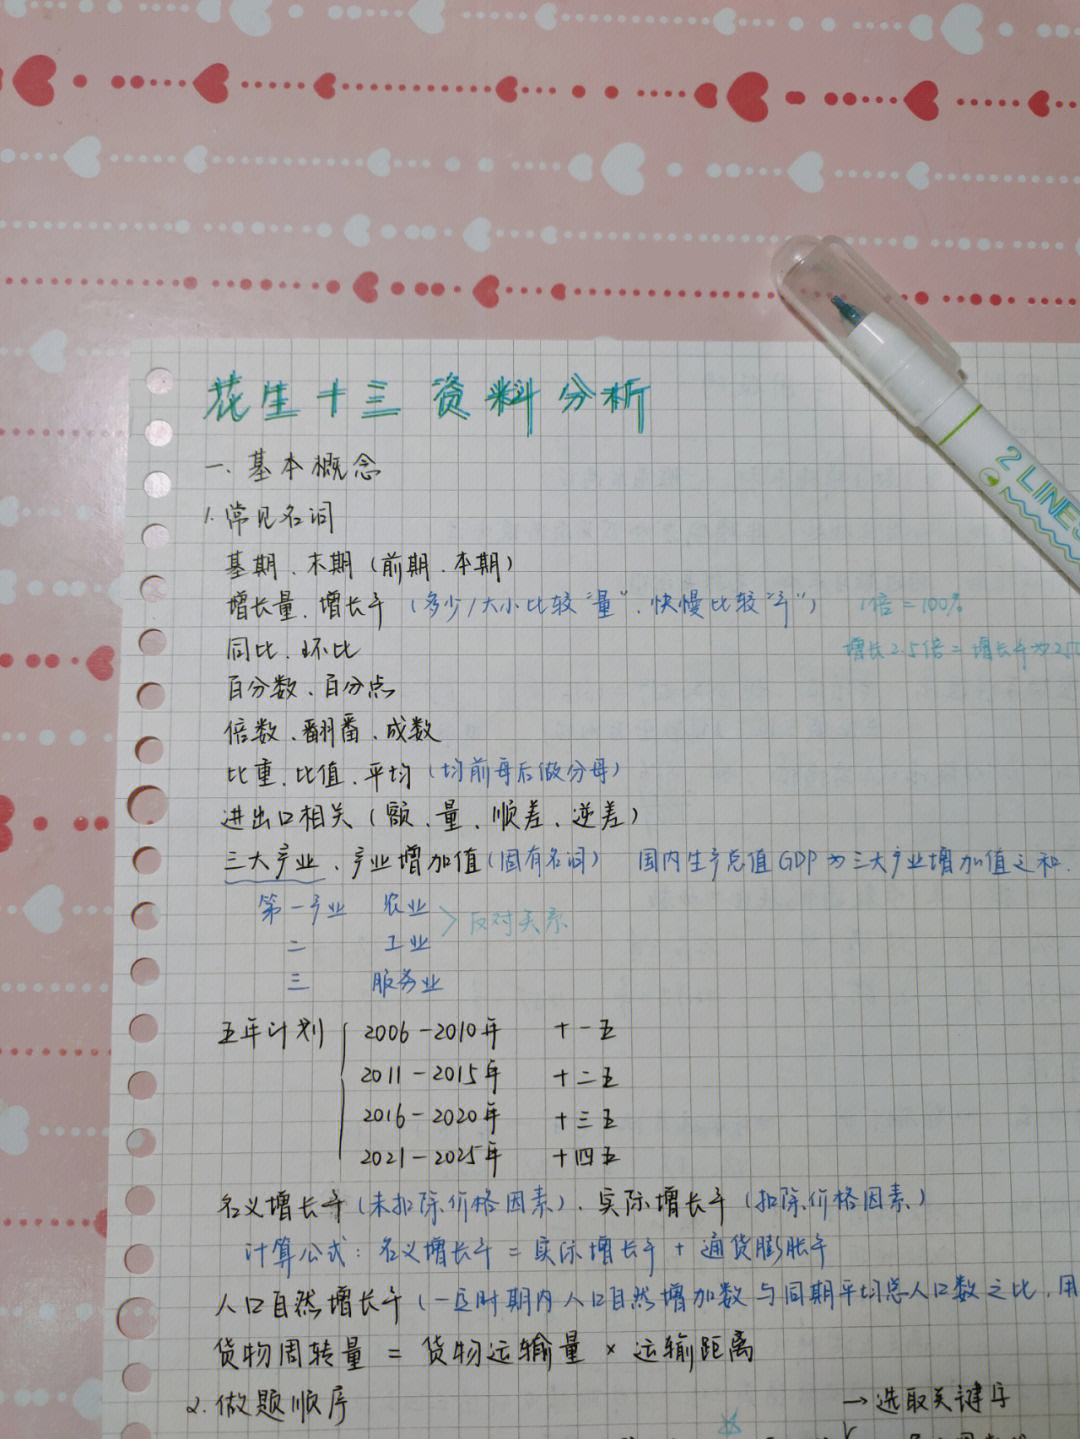 花生十三 资料分析
一. 基本概念
1. 常见名词
基期、末期（前期、本期）
增长量、增长率（多少/大小比较“量”、快慢比较“率”） 1倍=100%
增长2.5倍=增长率为250
同比、环比
百分数、百分点
倍数、翻番、成数
比重、比值、平均（均前每后做分母）
进出口相关（额、量、顺差、逆差）
三大产业、产业增加值（固有名词） 国内生产总值GDP为三大产业增加值之和.
第一产业 农业
二 工业 > 反对关系
三 服务业
五年计划 2006-2010年 十一五
2011-2015年 十二五
2016-2020年 十三五
2021-2025年 十四五
名义增长率（未扣除价格因素）、实际增长率（扣除价格因素）
计算公式：名义增长率 = 实际增长率 + 通货膨胀率
人口自然增长率（一定时期内人口自然增加数与同期平均总人口数之比，用
货物周转量 = 货物运输量 × 运输距离
2. 做题顺序 →选取关键字
2 LINES